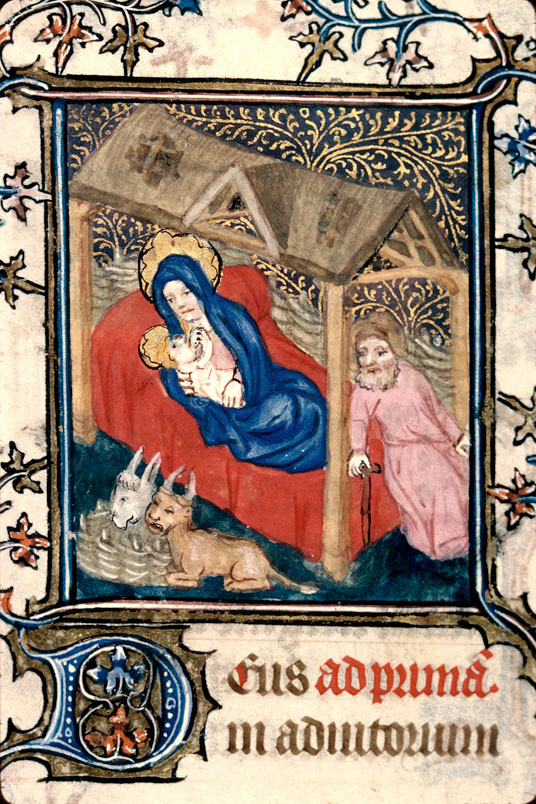 Deus ad primā.
in adiutorium